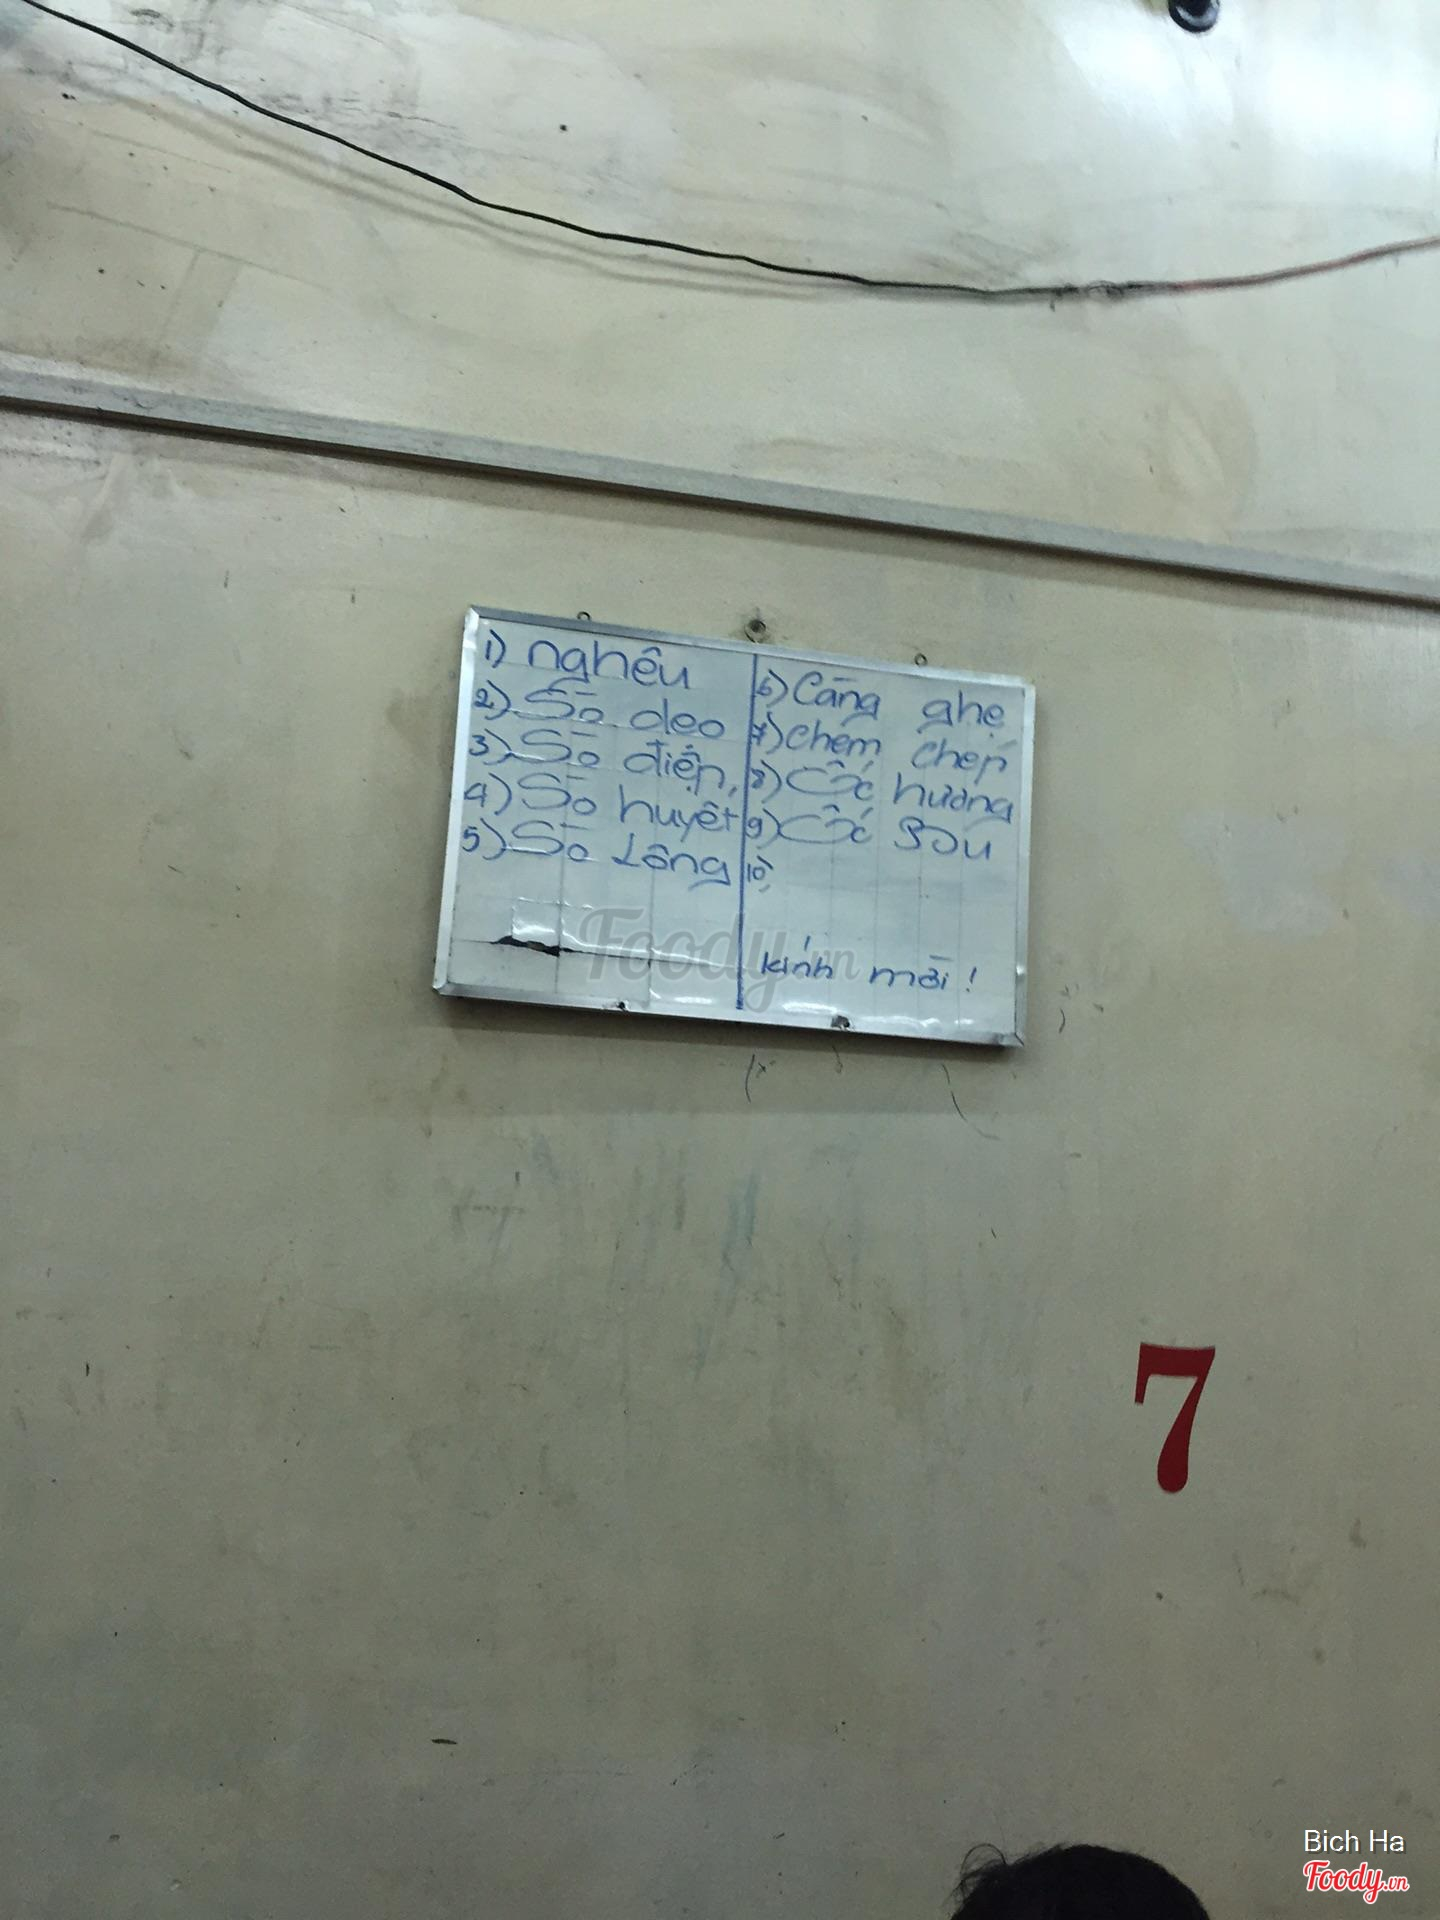 1) nghêu
2) Sò dẹo
3) Sò điệp,
4) Sò huyết
5) Sò Lông
6) Càng ghẹ
7) chem chép
8) Ốc hương
9) Ốc Bưu
10,
kính mời!
Foody.vn
7
Bich Ha
Foody.vn